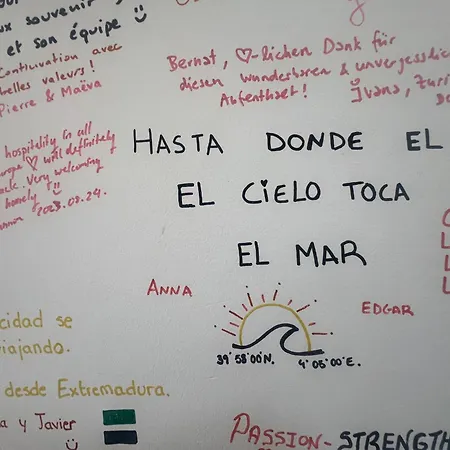 ux souvenir
et son équipe
Continuation avec
belles valeurs!
Pierre & Maëva
Bernat, ♡-lichen Dank für
diesen wunderbaren & unvergesslich
Aufenthaet!
Ivana, Zuri
hospitality in all
urope ♡ will definitely
Very welcoming
homely
2023.08.24.
HASTA DONDE EL
EL CIELO TOCA
EL MAR
ANNA
EDGAR
39°58'00"N. 4°05'00"E.
cidad se
viajando.
desde Extremadura.
a y Javier
PASSION-STRENGTH